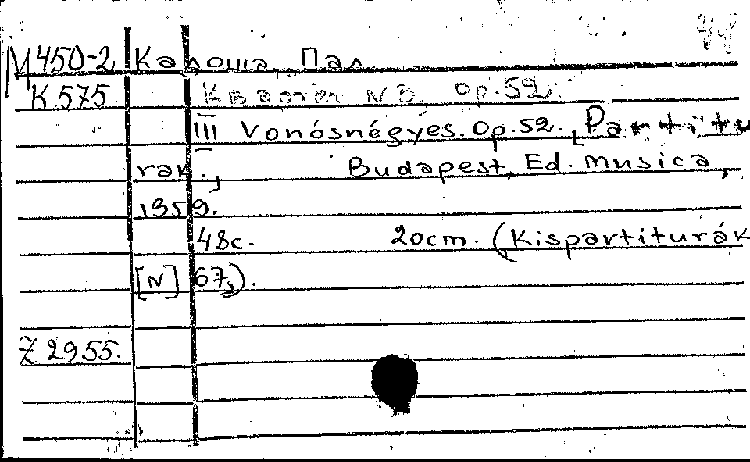 44
M450-2 Кадоша, Пал
K575 Квартет №3, op.52.
III Vonósnégyes. Op.52. [Partitu
rak.], Budapest, Ed. musica,
1959.
48c. 20cm. (Kispartiturák
[N] 67,).
Z 2955.